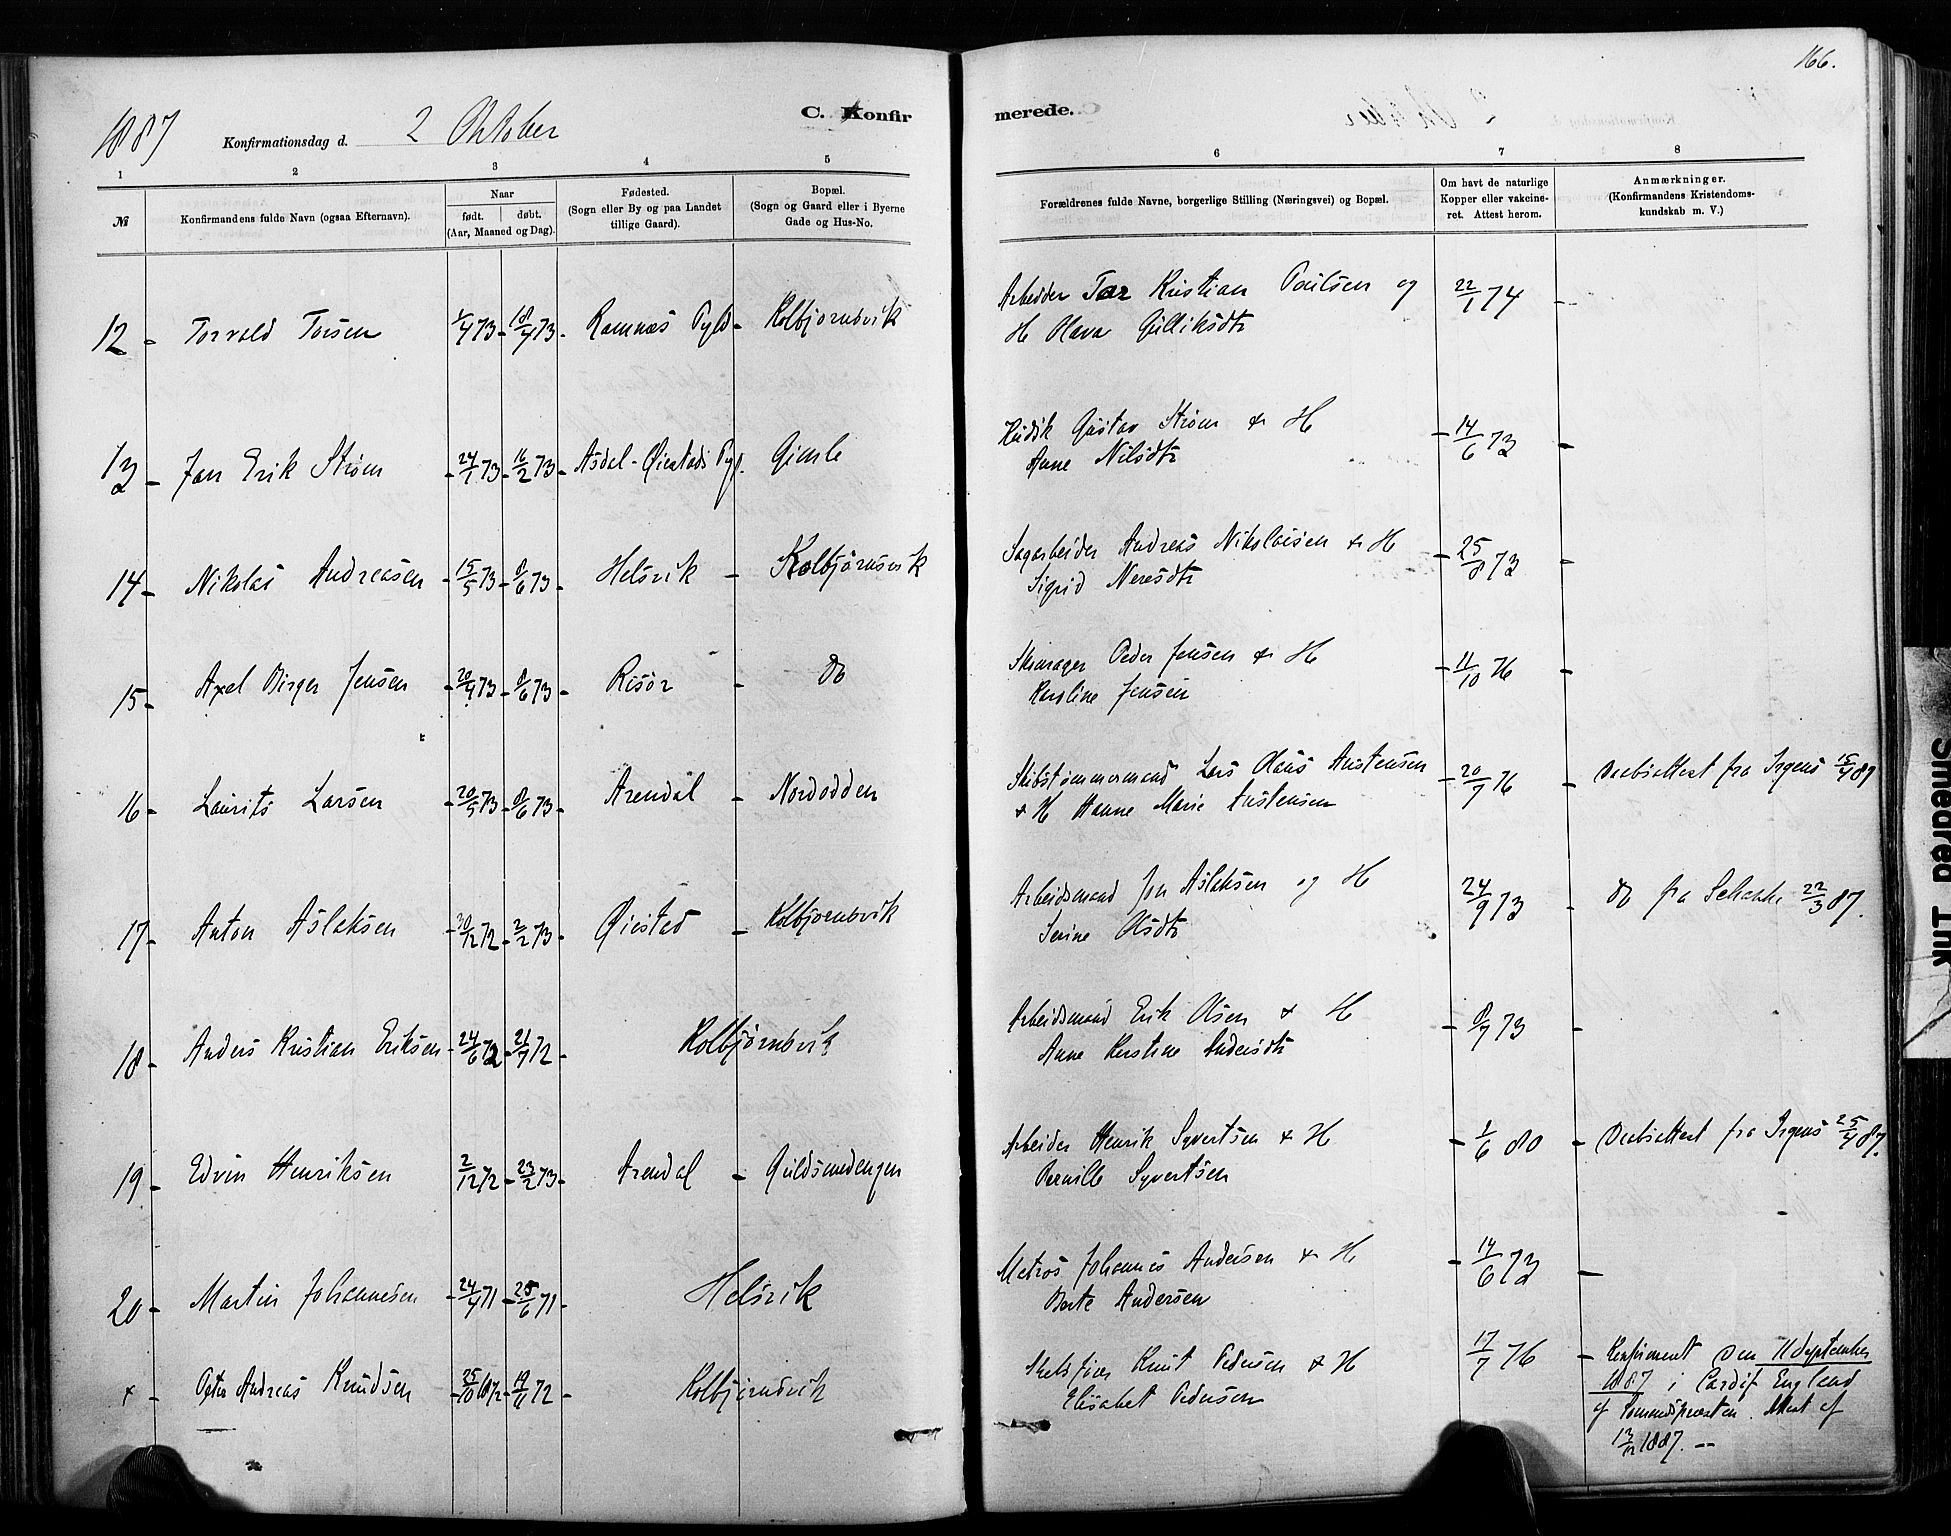 166.
1887 Konfirmationsdag d. 2 Oktober
C. Konfirmerede.
1 2 3 4 5 6 7 8
№
Konfirmandens fulde Navn (ogsaa Efternavn).
Naar
født. døbt.
(Aar, Maaned og Dag).
Fødested.
(Sogn eller By og paa Landet
tillige Gaard).
Bopæl.
(Sogn og Gaard eller i Byerne
Gade og Hus-No.
Forældrenes fulde Navne, borgerlige Stilling (Næringsvei) og Bopæl.
Om havt de naturlige
Kopper eller vakcine-
ret. Attest herom.
Anmærkninger.
(Konfirmandens Kristendoms-
kundskab m. V.)
12 - Torvald Torsen 1/4 73 - 18/7 73 - Ramnæs Pgld - Kolbjørnsvik
Arbeider Tar Kristian Poulsen og 22/1 74 -
H Olava Gulliksdtr
13 - Jan Erik Strøm - 24/1 73 - 16/2 73 - Asdal - Øiestads Pgj. Gimle
Gustav Strøm & H - 14/6 73 -
Anne Nilsdtr
14 - Nikolai Andreasen - 15/5 73 - 8/6 73 - Helsvik - Kolbjørnsvik
Sagarbeider Andreas Nikolaisen & H - 25/8 73 -
Sigrid Neresdtr
15 - Axel Birger Jensen - 20/4 73 - 8/6 73 - Risør - do
Skomager Peder Jensen & H - 11/10 76 -
Karoline Jensen
16 - Laurits Larsen - 20/5 73 - 8/6 73 - Arendal - Nordodden
Skibstømmermand Lars Olaus Austensen - 20/7 76 - Daabsattest fra Irgens 15/4 87
& H Hanne Marie Austensen
17 - Anton Aslaksen - 30/12 72 - 2/2 73 - Øiestad - Kolbjørnsvik
Arbeidsmand Jon Aslaksen og H 24/9 73 - do fra Schanke 22/3 87.
Serine Olsdtr
18 - Anders Kristian Eriksen - 24/6 72 - 21/7 72 - Kolbjørnsvik
Arbeidsmand Erik Olsen & H - 8/7 73 -
Anne Kerstine Andersdtr
19 - Edvin Henriksen 2/12 72 - 23/2 73 - Arendal - Guldsmedengen
Arbeider Henrik Syvertsen & H - 1/6 80 - Daabsattest fra Irgens 25/4 87.
Pernille Syvertsen
20 - Martin Johannesen - 24/4 71 - 25/6 71 - Helsvik
Matros Johannes Andersen & H - 14/6 73 -
Berte Andersen
x Peter Andreas Knudsen - 25/10 1872 - 19/11 72 - Kolbjørnsvik
Skibsfører Knut Pedersen & H 17/7 76 - Konfirmeret den 11 September
Elisabet Pedersen
1887 i Cardif England
af Sømandspræsten. Attest af
13/12 1887. -
Smeared Ink